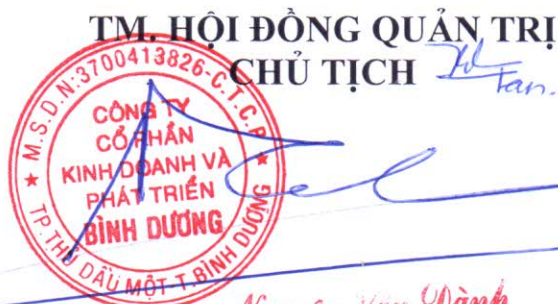 TM. HỘI ĐỒNG QUẢN TRỊ
CHỦ TỊCH
M.S.D.N:3700413826-C.T.C.P
CÔNG TY
CỔ PHẦN
KINH DOANH VÀ
PHÁT TRIỂN
BÌNH DƯƠNG
TP.THỦ DẦU MỘT-T.BÌNH DƯƠNG